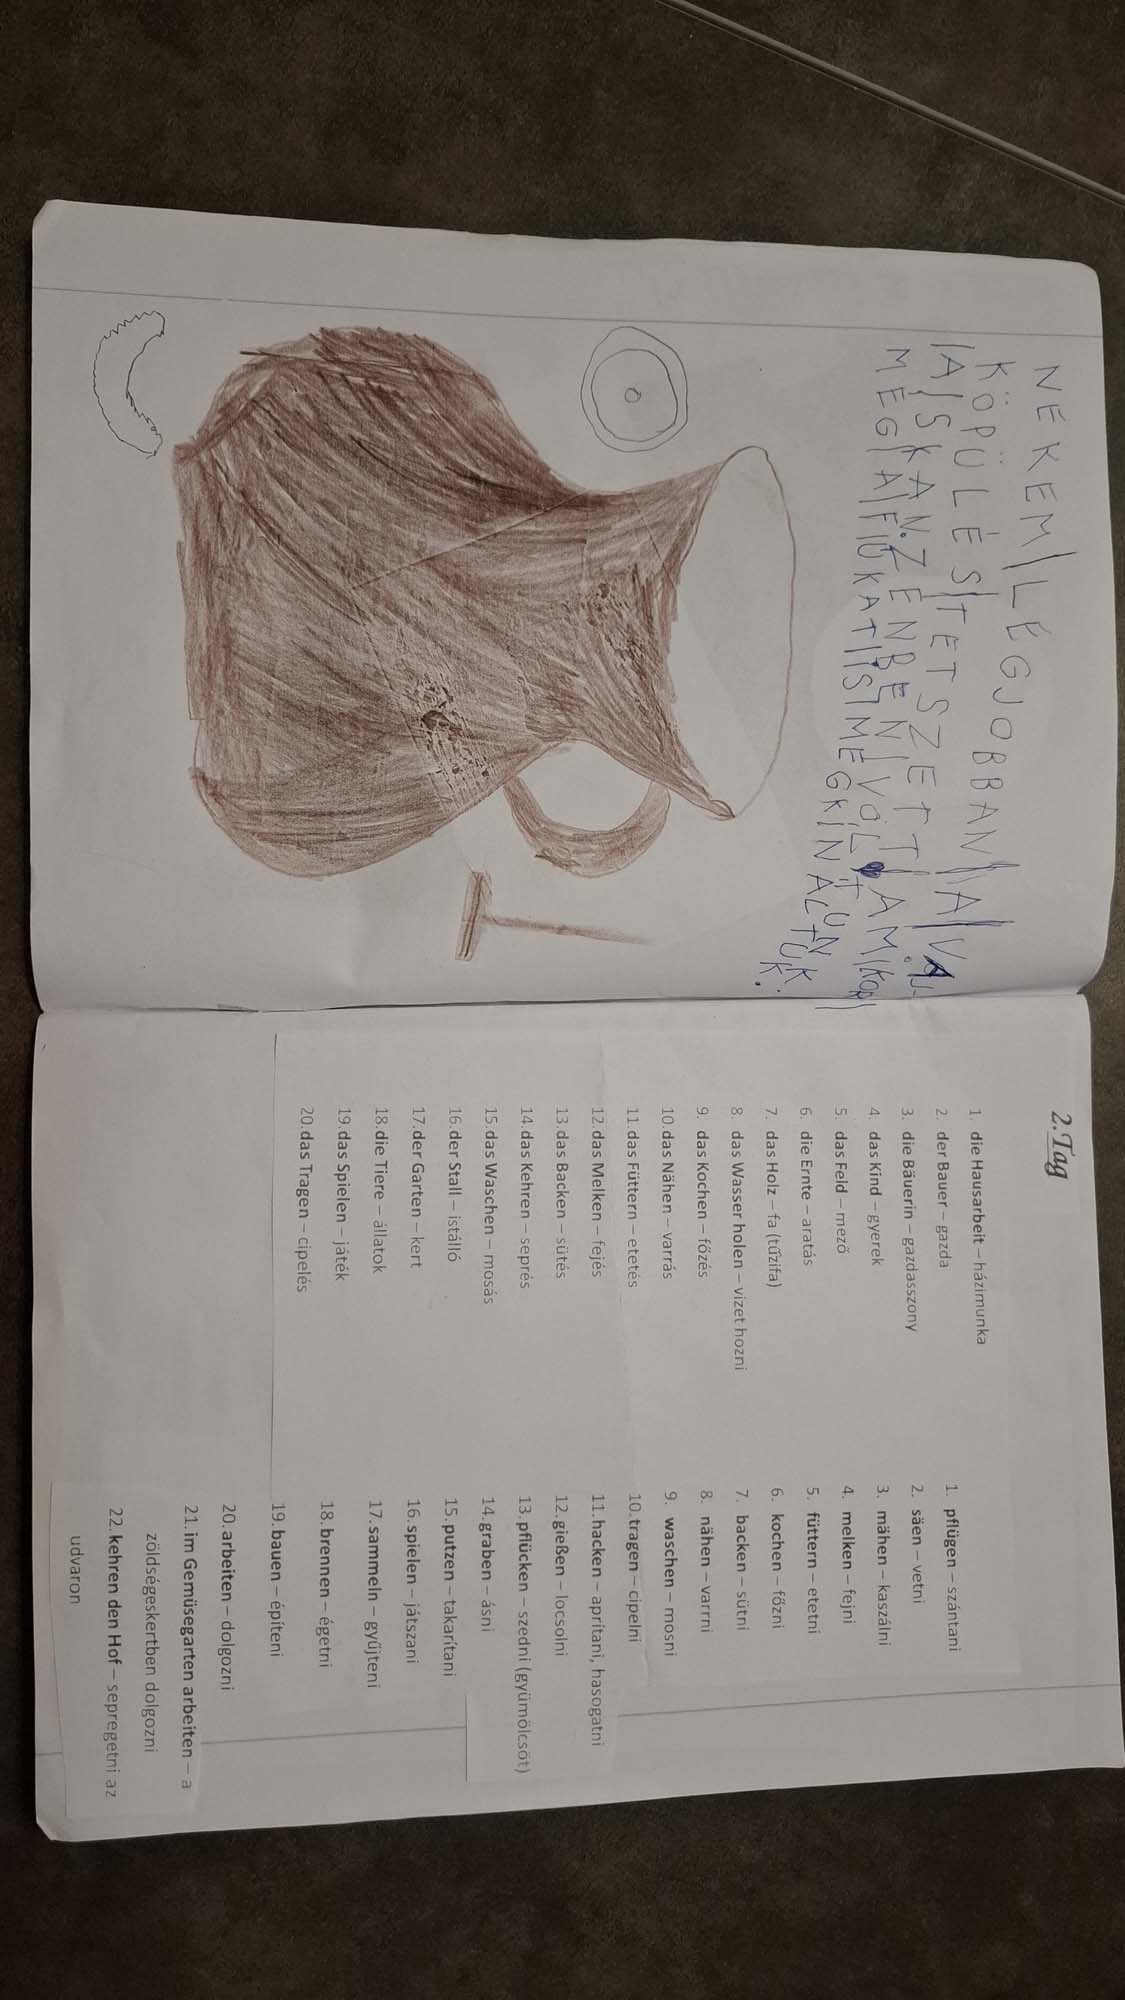 NEKEM/LEGJOBBAN/A/VAJ-
KÖPÜLÉS/TETSZETT/AMIKOR/
/A/SKANZENBEN/VOLTUNK.
MEG/A/FIÚKAT/IS/MEGKÍNÁLTUK.
2.Tag
1. die Hausarbeit – házimunka
2. der Bauer – gazda
3. die Bäuerin – gazdasszony
4. das Kind – gyerek
5. das Feld – mező
6. die Ernte – aratás
7. das Holz – fa (tűzifa)
8. das Wasser holen – vizet hozni
9. das Kochen – főzés
10. das Nähen – varrás
11. das Füttern – etetés
12. das Melken – fejés
13. das Backen – sütés
14. das Kehren – seprés
15. das Waschen – mosás
16. der Stall – istálló
17. der Garten – kert
18. die Tiere – állatok
19. das Spielen – játék
20. das Tragen – cipelés
1. pflügen – szántani
2. säen – vetni
3. mähen – kaszálni
4. melken – fejni
5. füttern – etetni
6. kochen – főzni
7. backen – sütni
8. nähen – varrni
9. waschen – mosni
10. tragen – cipelni
11. hacken – aprítani, hasogatni
12. gießen – locsolni
13. pflücken – szedni (gyümölcsöt)
14. graben – ásni
15. putzen – takarítani
16. spielen – játszani
17. sammeln – gyűjteni
18. brennen – égetni
19. bauen – építeni
20. arbeiten – dolgozni
21. im Gemüsegarten arbeiten – a
zöldségeskertben dolgozni
22. kehren den Hof – sepregetni az
udvaron